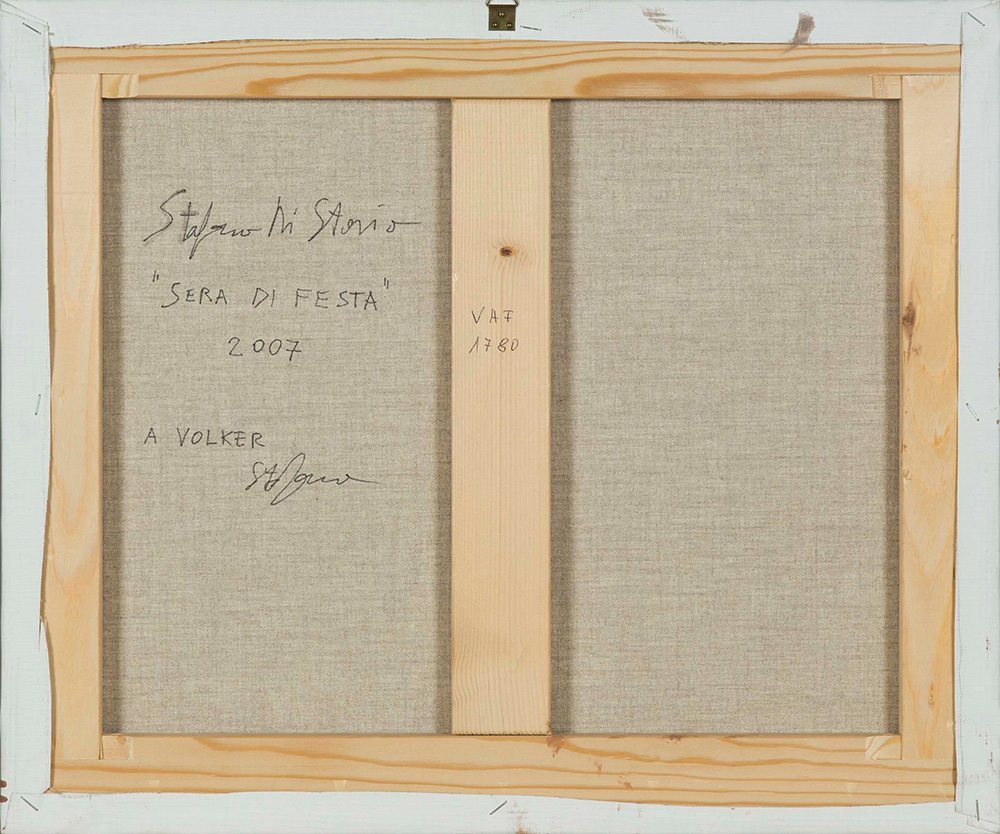 Stefano Di Stasio
"SERA DI FESTA"
2007
A VOLKER
Stefano
VAF
1780